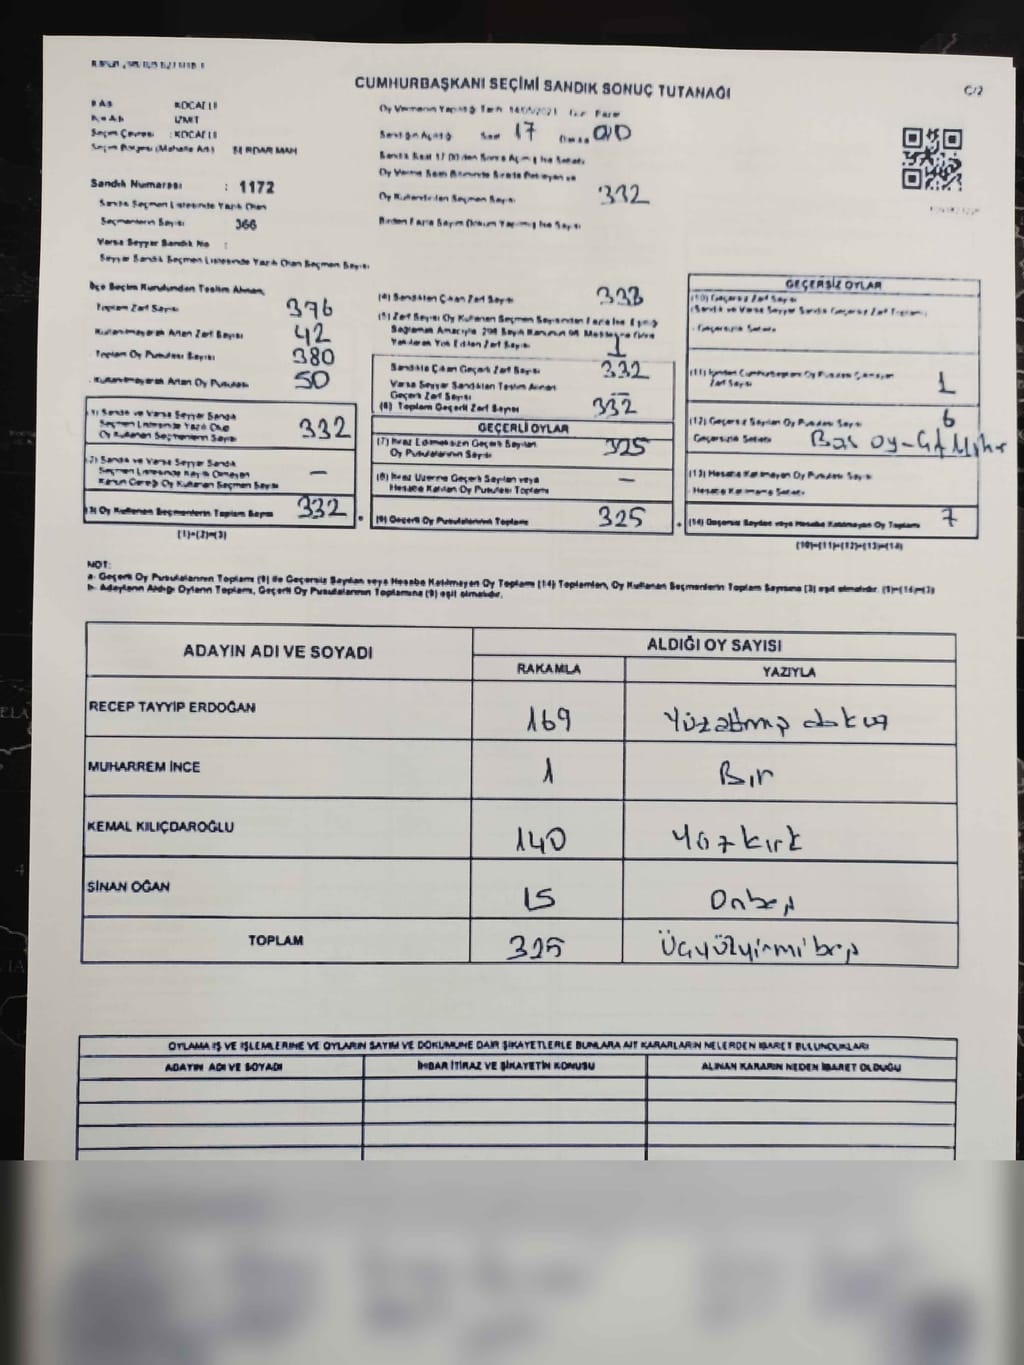 CUMHURBAŞKANI SEÇİMİ SANDIK SONUÇ TUTANAĞI
C/2
KOCAELİ
İZMİT
Seçim Çevresi : KOCAELİ
Seçim Bölgesi (Mahalle Adı) SERDAR MAH
Oy Vermenin Yapıldığı Tarih 14/05/2023 Gün Pazar
Sandığın Açıldığı Saat 17 Dakika 00
Sandık Saat 17.00'den Sonra Açılmış İse Sebebi
Oy Verme Saati Bitiminde Sırada Bekleyen ve
Oy Kullandırılan Seçmen Sayısı 332
Birden Fazla Sayım Döküm Yapılmış İse Sayısı
Sandık Numarası : 1172
Sandık Seçmen Listesinde Yazılı Olan
Seçmenlerin Sayısı 366
Varsa Seyyar Sandık No :
Seyyar Sandık Seçmen Listesinde Yazılı Olan Seçmen Sayısı
İlçe Seçim Kurulundan Teslim Alınan,
Toplam Zarf Sayısı 376
Kullanılmayarak Artan Zarf Sayısı 42
Toplam Oy Pusulası Sayısı 380
Kullanılmayarak Artan Oy Pusulası 50
(1) Sandık ve Varsa Seyyar Sandık
Seçmen Listesinde Yazılı Olup
Oy Kullanan Seçmenlerin Sayısı 332
(2) Sandık ve Varsa Seyyar Sandık
Seçmen Listesinde Kayıtlı Olmayan
Kanun Gereği Oy Kullanan Seçmen Sayısı —
(3) Oy Kullanan Seçmenlerin Toplam Sayısı 332
(1)+(2)=(3)
(4) Sandıktan Çıkan Zarf Sayısı 333
(5) Zarf Sayısı Oy Kullanan Seçmen Sayısından Fazla İse Eşitliği
Sağlamak Amacıyla 298 Sayılı Kanunun 98. Maddesine Göre
Yakılarak Yok Edilen Zarf Sayısı 1
Sandıkta Çıkan Geçerli Zarf Sayısı 332
Varsa Seyyar Sandıktan Teslim Alınan
Geçerli Zarf Sayısı —
(6) Toplam Geçerli Zarf Sayısı 332
GEÇERLİ OYLAR
(7) İtiraz Edilmeksizin Geçerli Sayılan
Oy Pusulalarının Sayısı 325
(8) İtiraz Üzerine Geçerli Sayılan veya
Hesaba Katılan Oy Pusulası Toplamı —
(9) Geçerli Oy Pusulalarının Toplamı 325
GEÇERSİZ OYLAR
(10) Geçersiz Zarf Sayısı
(Sandık ve Varsa Seyyar Sandık Geçersiz Zarf Toplamı)
Geçersizlik Sebebi
(11) İçinden Cumhurbaşkanı Oy Pusulası Çıkmayan
Zarf Sayısı 1
(12) Geçersiz Sayılan Oy Pusulası Sayısı 6
Geçersizlik Sebebi Boş oy-
(13) Hesaba Katılmayan Oy Pusulası Sayısı
Hesaba Katılmama Sebebi
(14) Geçersiz Sayılan veya Hesaba Katılmayan Oy Toplamı 7
(10)+(11)+(12)+(13)=(14)
NOT:
a- Geçerli Oy Pusulalarının Toplamı (9) ile Geçersiz Sayılan veya Hesaba Katılmayan Oy Toplamı (14) Toplamları, Oy Kullanan Seçmenlerin Toplam Sayısına (3) eşit olmalıdır. (9)+(14)=(3)
b- Adayların Aldığı Oyların Toplamı, Geçerli Oy Pusulalarının Toplamına (9) eşit olmalıdır.
ADAYIN ADI VE SOYADI
ALDIĞI OY SAYISI
RAKAMLA YAZIYLA
RECEP TAYYİP ERDOĞAN 169 Yüzatmış dokuz
MUHARREM İNCE 1 Bir
KEMAL KILIÇDAROĞLU 140 Yüzkırk
SİNAN OĞAN 15 Onbeş
TOPLAM 325 Üçyüzyirmibeş
OYLAMA İŞ VE İŞLEMLERİNE VE OYLARIN SAYIM VE DÖKÜMÜNE DAİR ŞİKAYETLERLE BUNLARA AİT KARARLARIN NELERDEN İBARET BULUNDUKLARI
ADAYIN ADI VE SOYADI İHBAR İTİRAZ VE ŞİKAYETİN KONUSU ALINAN KARARIN NEDEN İBARET OLDUĞU